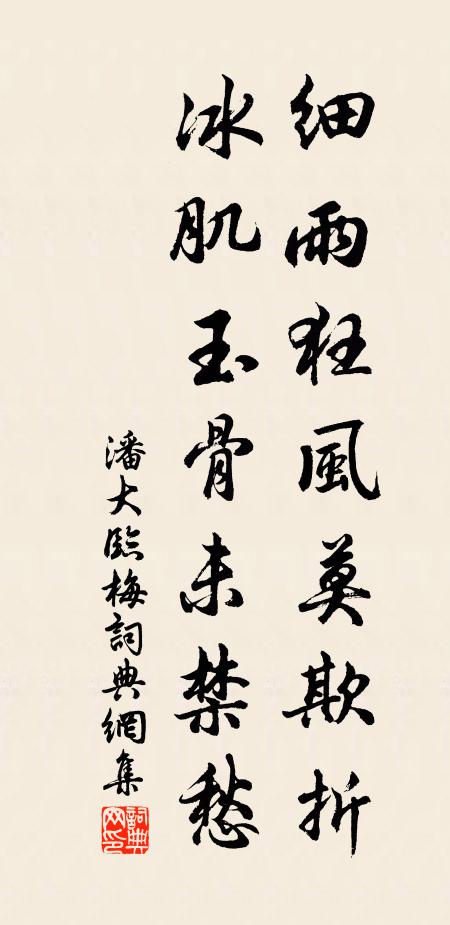 細雨狂風莫欺折
冰肌玉骨未禁愁
潘大臨梅詞典網集
詞典网印